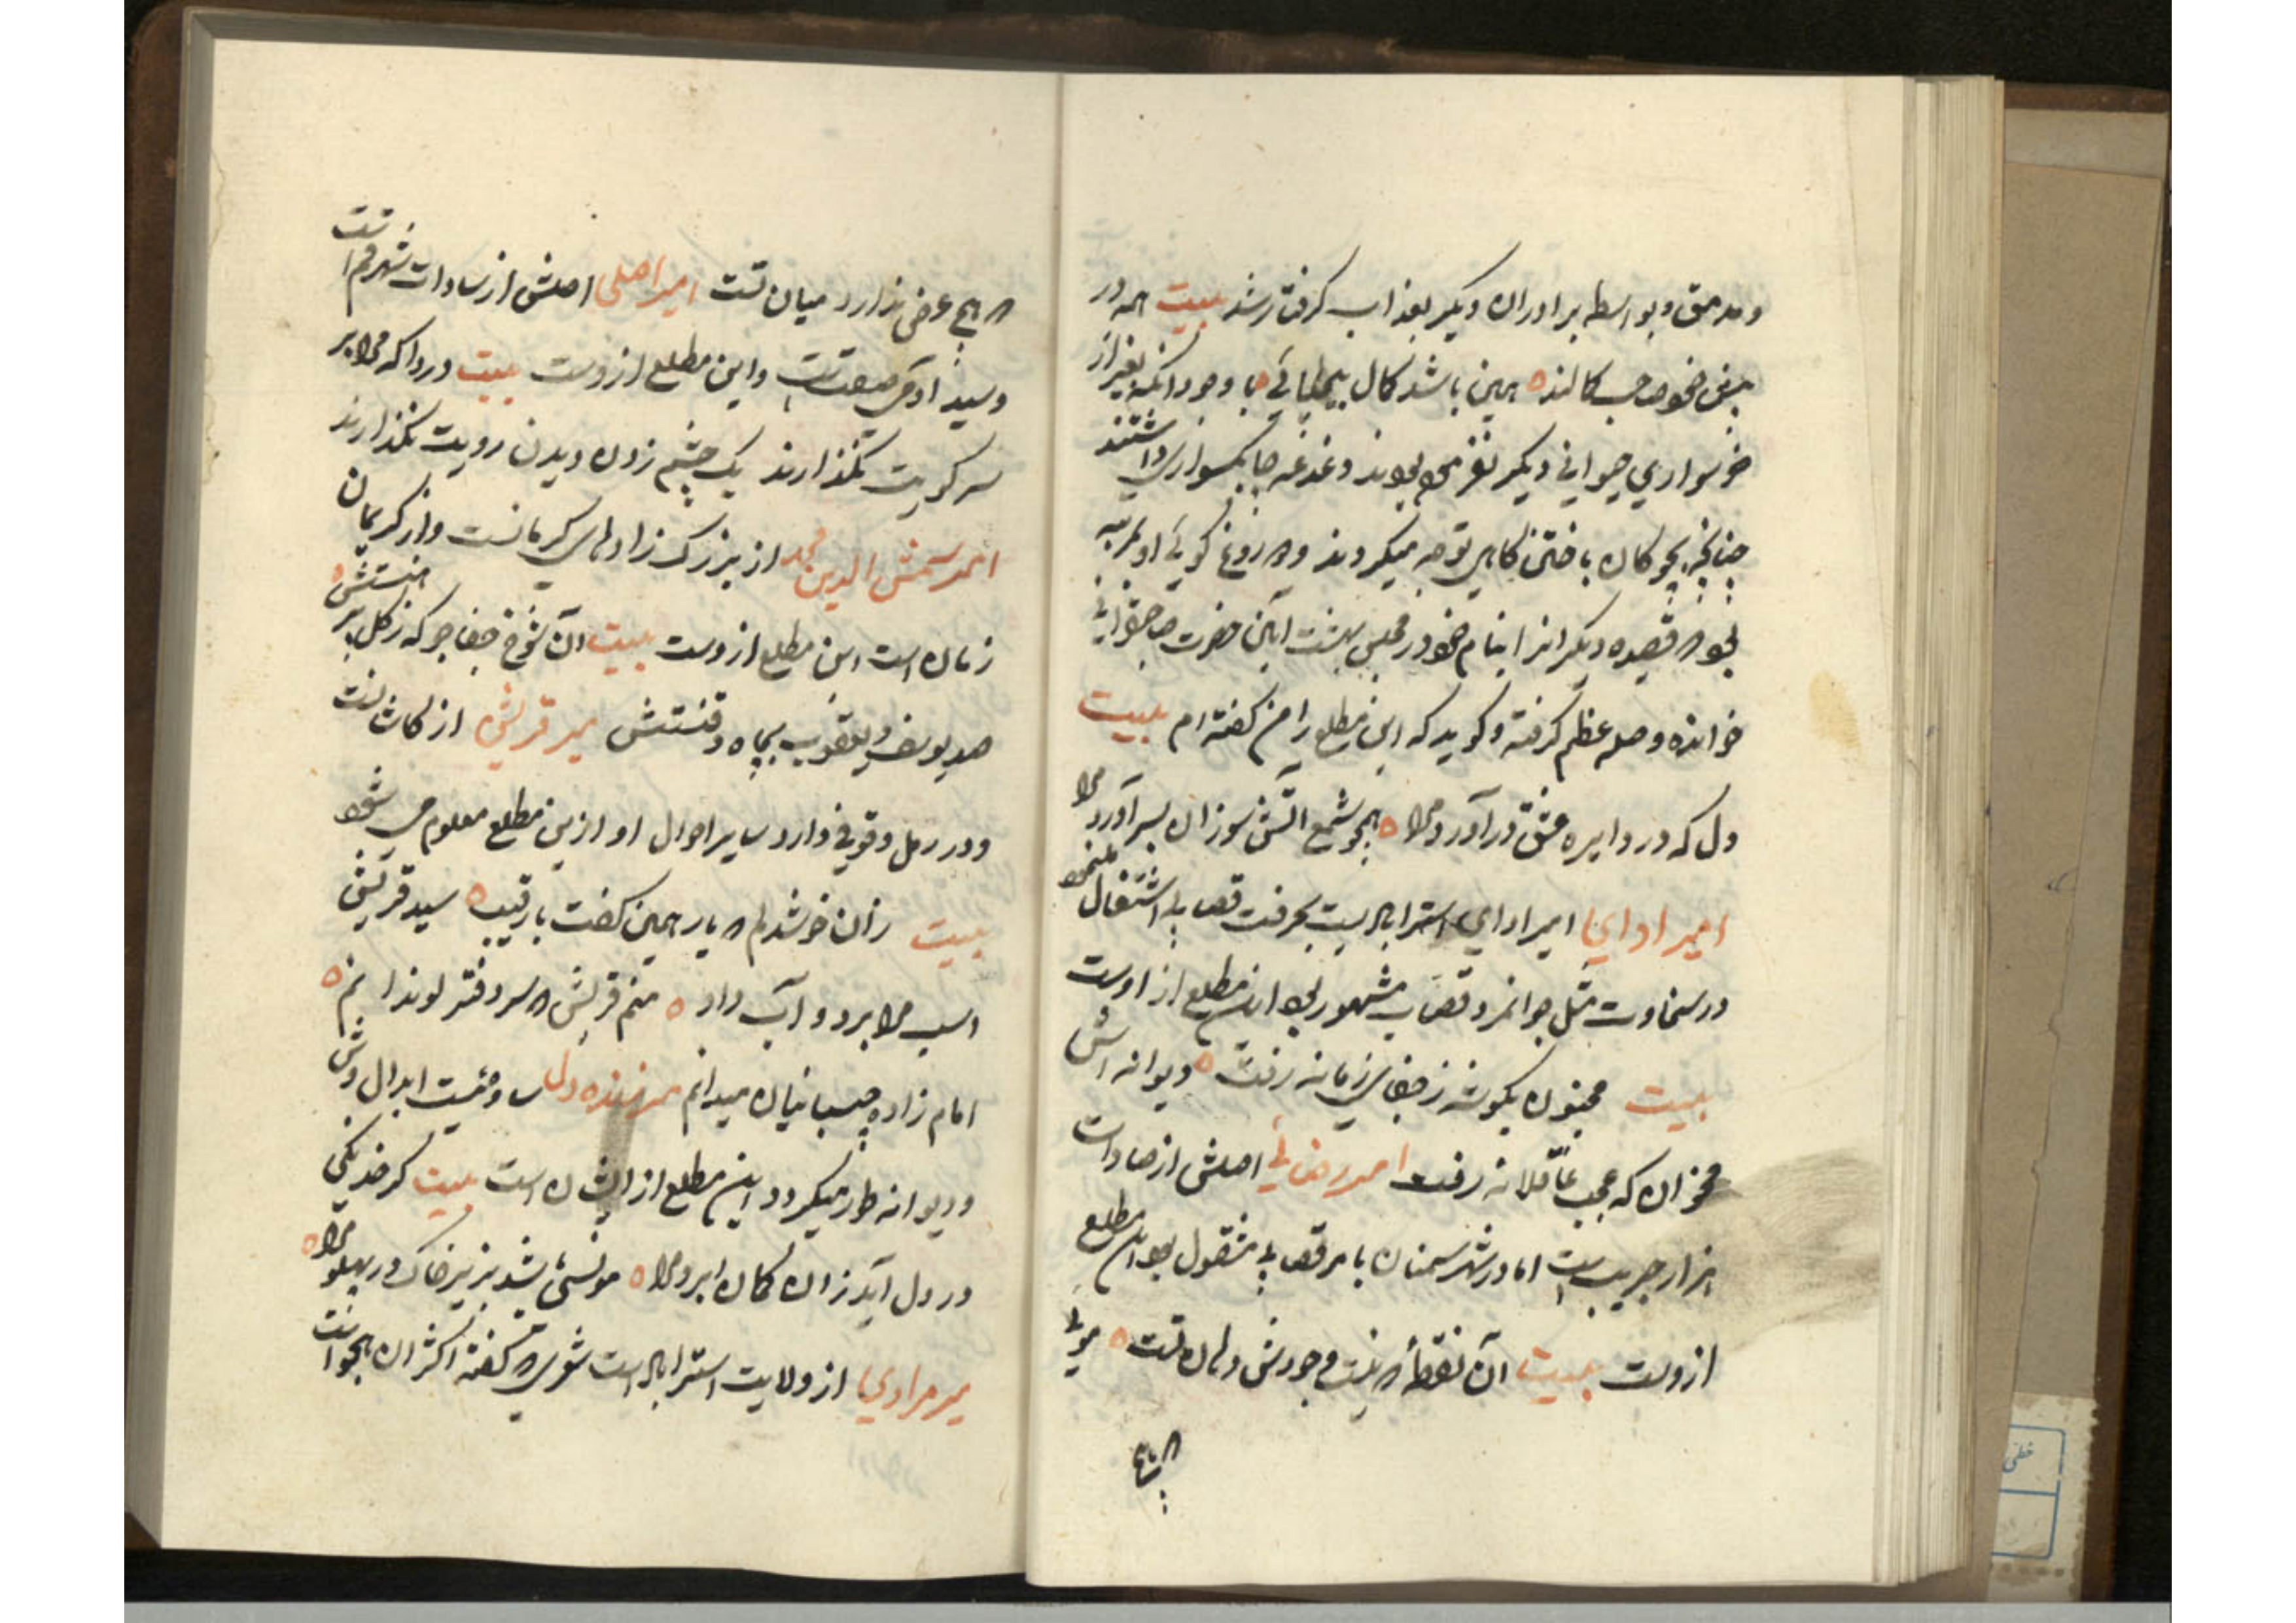 و مدمق و بواسطه برادران دیکر بعذاب کرفتار شد بیت همه در
بیغی خود صاحب کمالند ه همین باشد کمال بیحیائی ه با وجود انکه بغیر از
خرسواری حیوانی دیکر نفرموده بودند دغدغه چابکسواری داشتند
چنانچه بچوکان باختن کاهی توجه میکردند و دروغ کوئی او بمرتبه
بود که قصیده دیکرانرا بنام خود در مجلس بهشت آیین حضرت صاحبقرانی
خوانده و صله عظیم کرفته و کوید که این مطلع را من کفته ام بیت
دل که در دایره عشق درآورد مرا ه همچو شمع آتش سوزان بسر آورد مرا
امیر ادائی امیر ادائی استرابادیست بحرفت قصابی اشتغال مینمود
در سخاوت مثل جوانمرد قصاب مشهور بود این مطلع از اوست
بیت مجنون بکوشه ز جفای زمانه رفت ه دیوانه اش
مخوان که عجب عاقلانه رفت امیر رضائی اصلش از سادات
هزار جریب است اما در شهر سمنان بامر قصابی مشغول بود این مطلع
ازوست بیت آن نقطه که نیست وجودش دهان تست ه موئی
که هیچ
که هیچ عرض ندارد میان تست امیر اصلی اصلش از سادات شهر قم است
و سید آدمی صفت است و این مطلع ازوست بیت دردا که مرا بر
سر کویت نکذارند یک چشم زدن دیدن رویت نکذارند
امیر شمس الدین محمد از بزرک زادهای کرمانست و از کریمان
زمان است این مطلع ازوست بیت آن شوخ جفا جو که ز کل پیرهنستش ه
صد یوسف و یعقوب بچاه ذقنستش میر قریشی از کاشانست
و در رمل وقوفی دارد سایر احوال او ازین مطلع معلوم می شود
بیت زان خر شدم که یار همین کفت با رقیب ه سید قریش
اسب مرا برد و آب داد ه منم قریش که سر دفتر لوندانم ه
امام زاده چسبانیان میدانم میر زنده دل ساوجیست ابدال وش
و دیوانه طور میکردد این مطلع از ایشان است بیت کر خدنکی
در دل آید زان کمان ابرو مرا ه مونسی باشد بزیر خاک در پهلو مرا ه
میر مرادی از ولایت استراباد است شعری که کفته اکثر آن هجو است